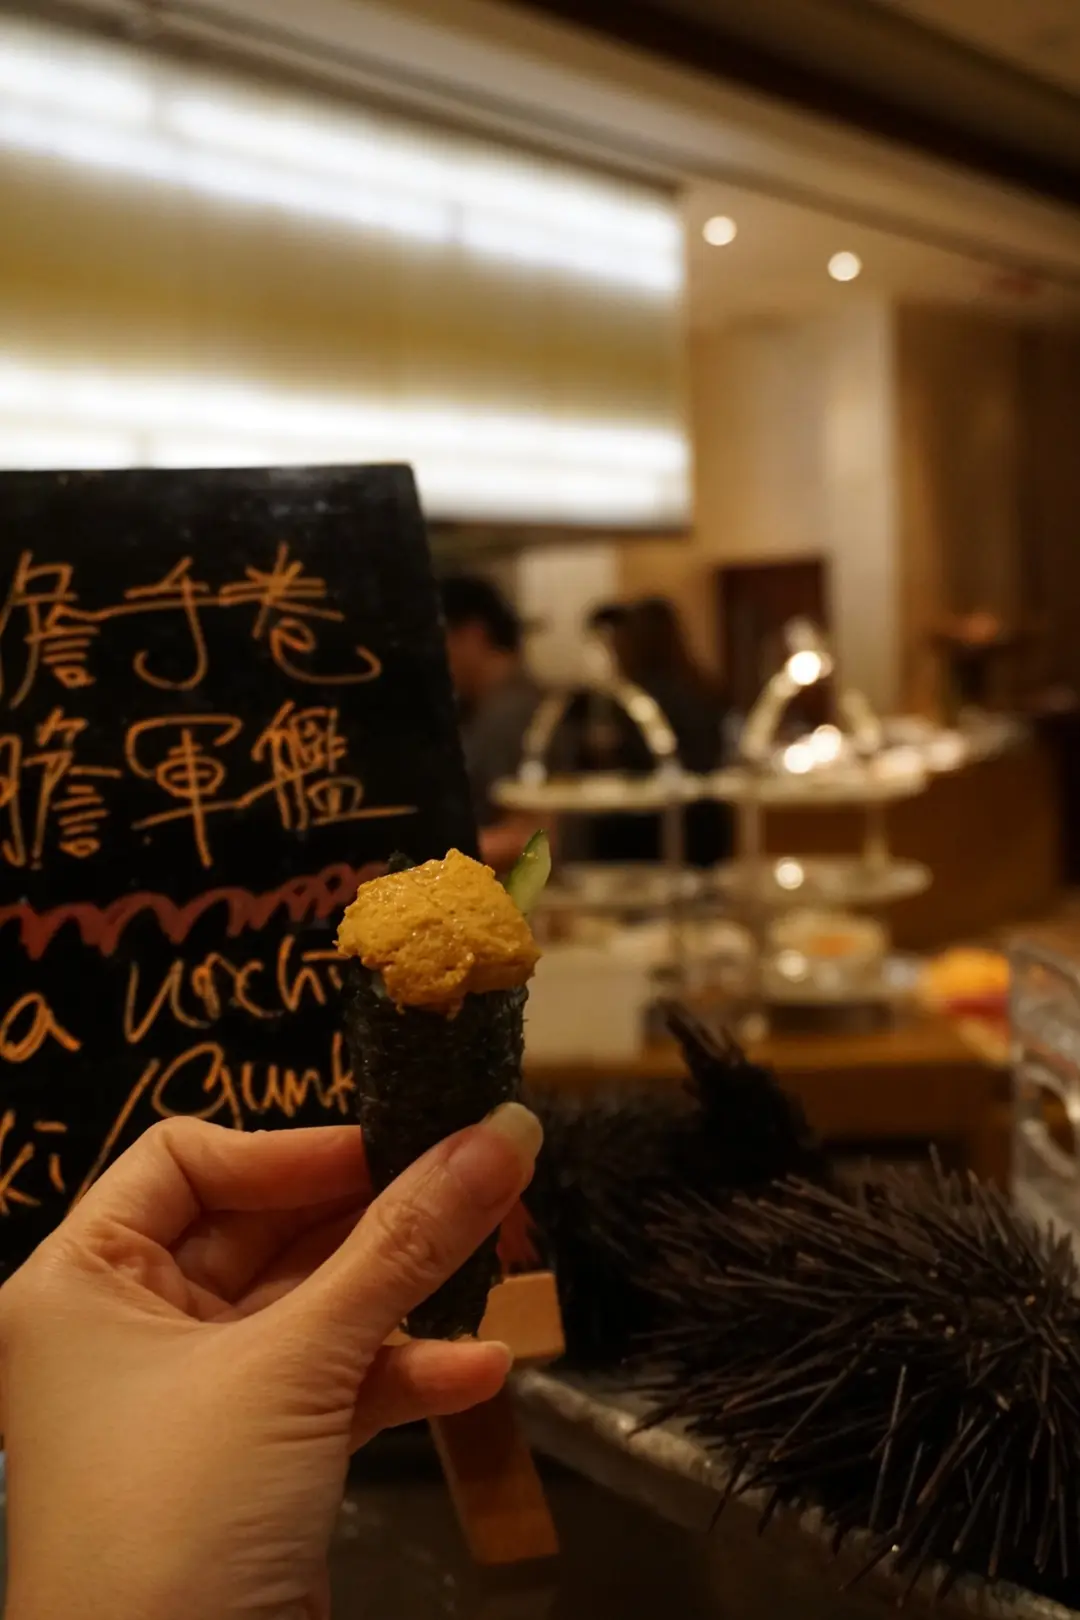 膽手卷
膽軍艦
a Urchi
ki/Gunk